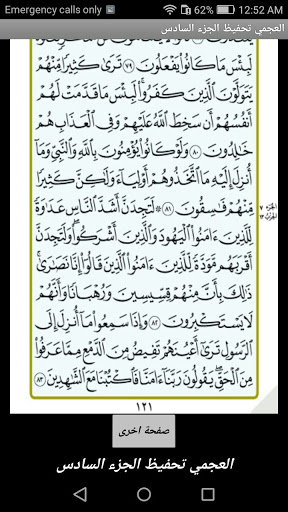 Emergency calls only
62%
12:52 AM
العجمي تحفيظ الجزء السادس
لَبِئْسَ مَا كَانُوا۟ يَفْعَلُونَ ٧٩ تَرَىٰ كَثِيرًا مِّنْهُمْ
يَتَوَلَّوْنَ الَّذِينَ كَفَرُوا۟ لَبِئْسَ مَا قَدَّمَتْ لَهُمْ
أَنفُسُهُمْ أَن سَخِطَ اللَّهُ عَلَيْهِمْ وَفِي الْعَذَابِ هُمْ
خَالِدُونَ ٨٠ وَلَوْ كَانُوا۟ يُؤْمِنُونَ بِاللَّهِ وَالنَّبِيِّ وَمَا
أُنزِلَ إِلَيْهِ مَا اتَّخَذُوهُمْ أَوْلِيَاءَ وَلَٰكِنَّ كَثِيرًا
مِّنْهُمْ فَاسِقُونَ ٨١ ۞ لَتَجِدَنَّ أَشَدَّ النَّاسِ عَدَاوَةً
لِّلَّذِينَ ءَامَنُوا۟ الْيَهُودَ وَالَّذِينَ أَشْرَكُوا۟ وَلَتَجِدَنَّ
أَقْرَبَهُم مَّوَدَّةً لِّلَّذِينَ ءَامَنُوا۟ الَّذِينَ قَالُوا۟ إِنَّا نَصَٰرَىٰ
ذَٰلِكَ بِأَنَّ مِنْهُمْ قِسِّيسِينَ وَرُهْبَانًا وَأَنَّهُمْ
لَا يَسْتَكْبِرُونَ ٨٢ وَإِذَا سَمِعُوا۟ مَا أُنزِلَ إِلَى
الرَّسُولِ تَرَىٰ أَعْيُنَهُمْ تَفِيضُ مِنَ الدَّمْعِ مِمَّا عَرَفُوا۟
مِنَ الْحَقِّ يَقُولُونَ رَبَّنَا ءَامَنَّا فَاكْتُبْنَا مَعَ الشَّاهِدِينَ ٨٣
١٢١
صفحة اخرى
العجمي تحفيظ الجزء السادس